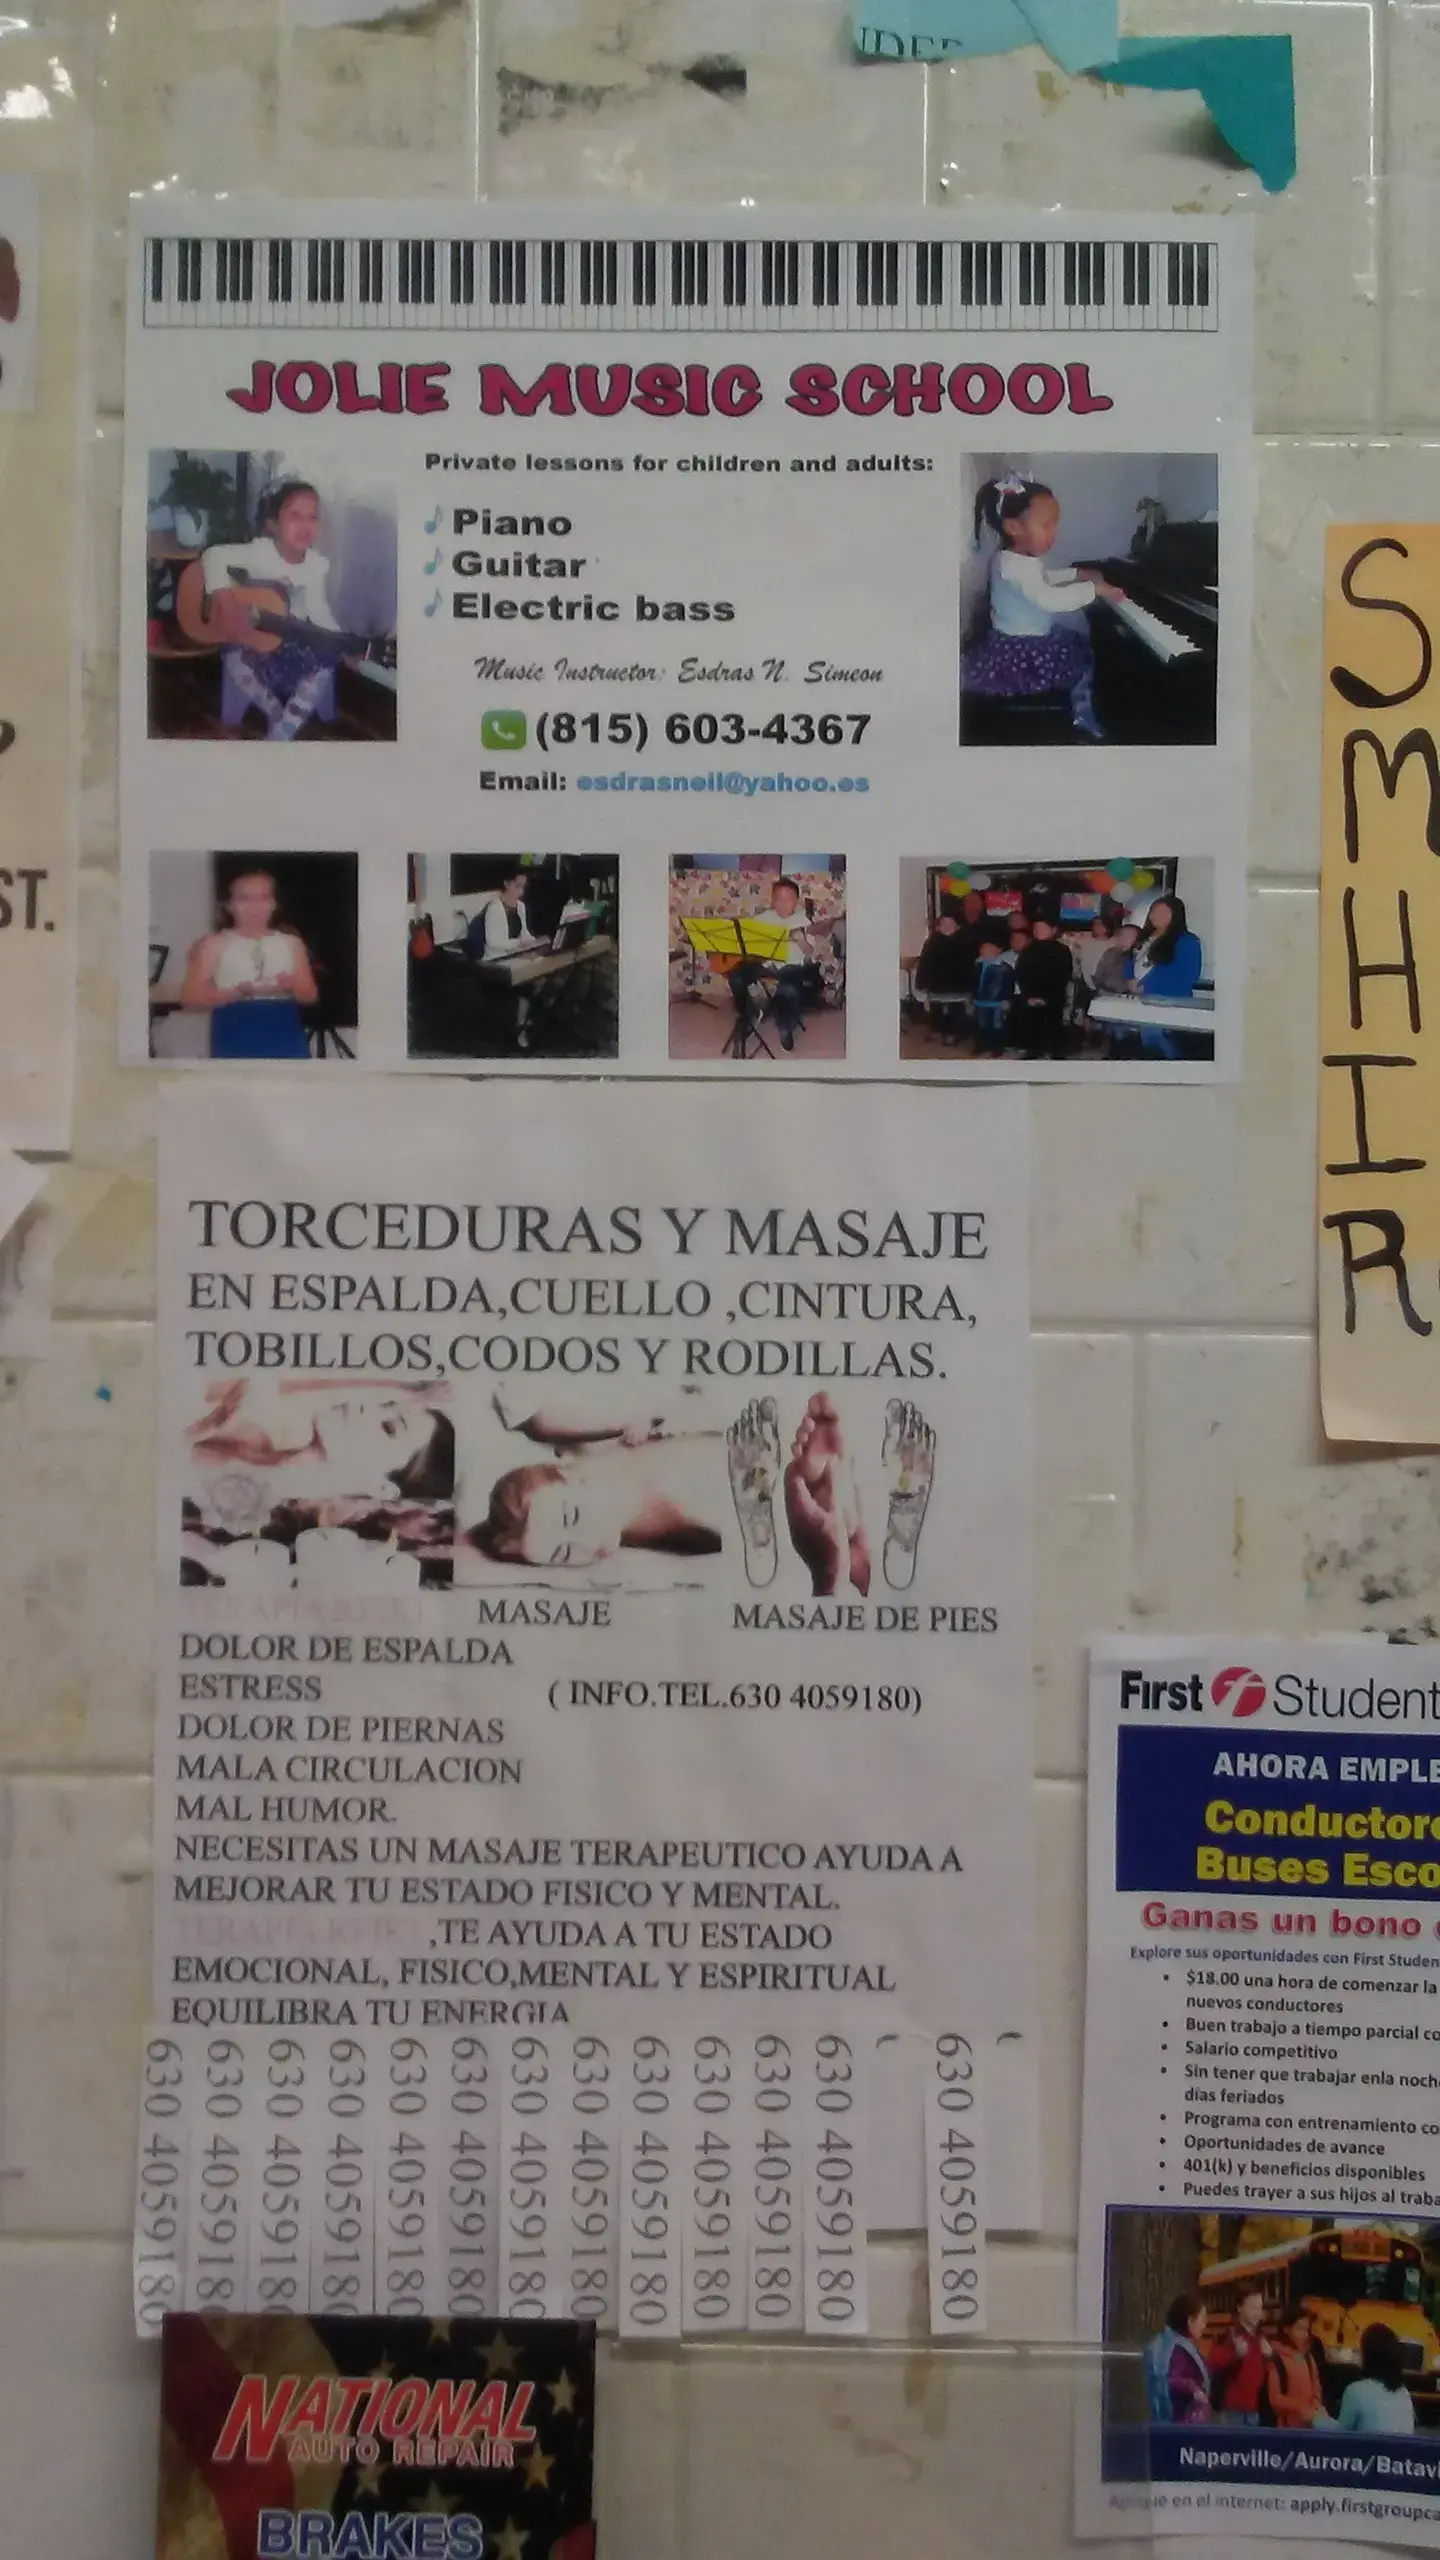 JOLIE MUSIC SCHOOL
Private lessons for children and adults:
Piano
Guitar
Electric bass
Music Instructor: Esdras N. Simeon
(815) 603-4367
Email: esdrasneil@yahoo.es
TORCEDURAS Y MASAJE
EN ESPALDA,CUELLO ,CINTURA,
TOBILLOS,CODOS Y RODILLAS.
MASAJE
MASAJE DE PIES
DOLOR DE ESPALDA
ESTRESS
( INFO.TEL.630 4059180)
DOLOR DE PIERNAS
MALA CIRCULACION
MAL HUMOR.
NECESITAS UN MASAJE TERAPEUTICO AYUDA A
MEJORAR TU ESTADO FISICO Y MENTAL.
TERAPIA REIKI ,TE AYUDA A TU ESTADO
EMOCIONAL, FISICO,MENTAL Y ESPIRITUAL
EQUILIBRA TU ENERGIA
630 4059180
630 4059180
630 4059180
630 4059180
630 4059180
630 4059180
630 4059180
630 4059180
630 4059180
630 4059180
630 4059180
630 4059180
630 4059180
NATIONAL
AUTO REPAIR
BRAKES
First Student
AHORA EMPLE
Conductore
Buses Esco
Ganas un bono
Explore sus oportunidades con First Student
$18.00 una hora de comenzar la
nuevos conductores
Buen trabajo a tiempo parcial co
Salario competitivo
Sin tener que trabajar enla noch
días feriados
Programa con entrenamiento co
Oportunidades de avance
401(k) y beneficios disponibles
Puedes trayer a sus hijos al traba
Naperville/Aurora/Batavi
Aplique en el internet: apply.firstgroupca
ST.
S
M
H
I
R